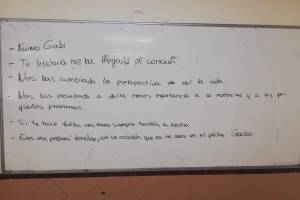 - Animo Gabi
- Tu historia nos ha llegado al corazón
- Nos has cambiado la perspectiva de ver la vida.
- Nos has enseñado a darle menos importancia a lo material y a los pe-
queños problemas.
- Si te hace falta una mano siempre tendrás la nuestra
- Eres una persona increíble, con un corazón que no te cabe en el pecho. Gracias